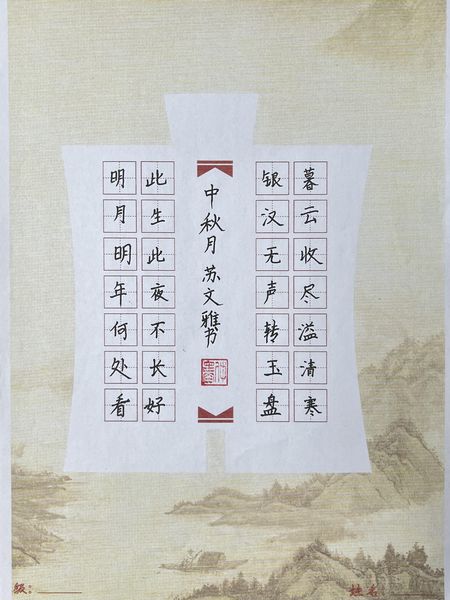 暮云收尽溢清寒
银汉无声转玉盘
中秋月 苏文雅书
此生此夜不长好
明月明年何处看
级
姓名